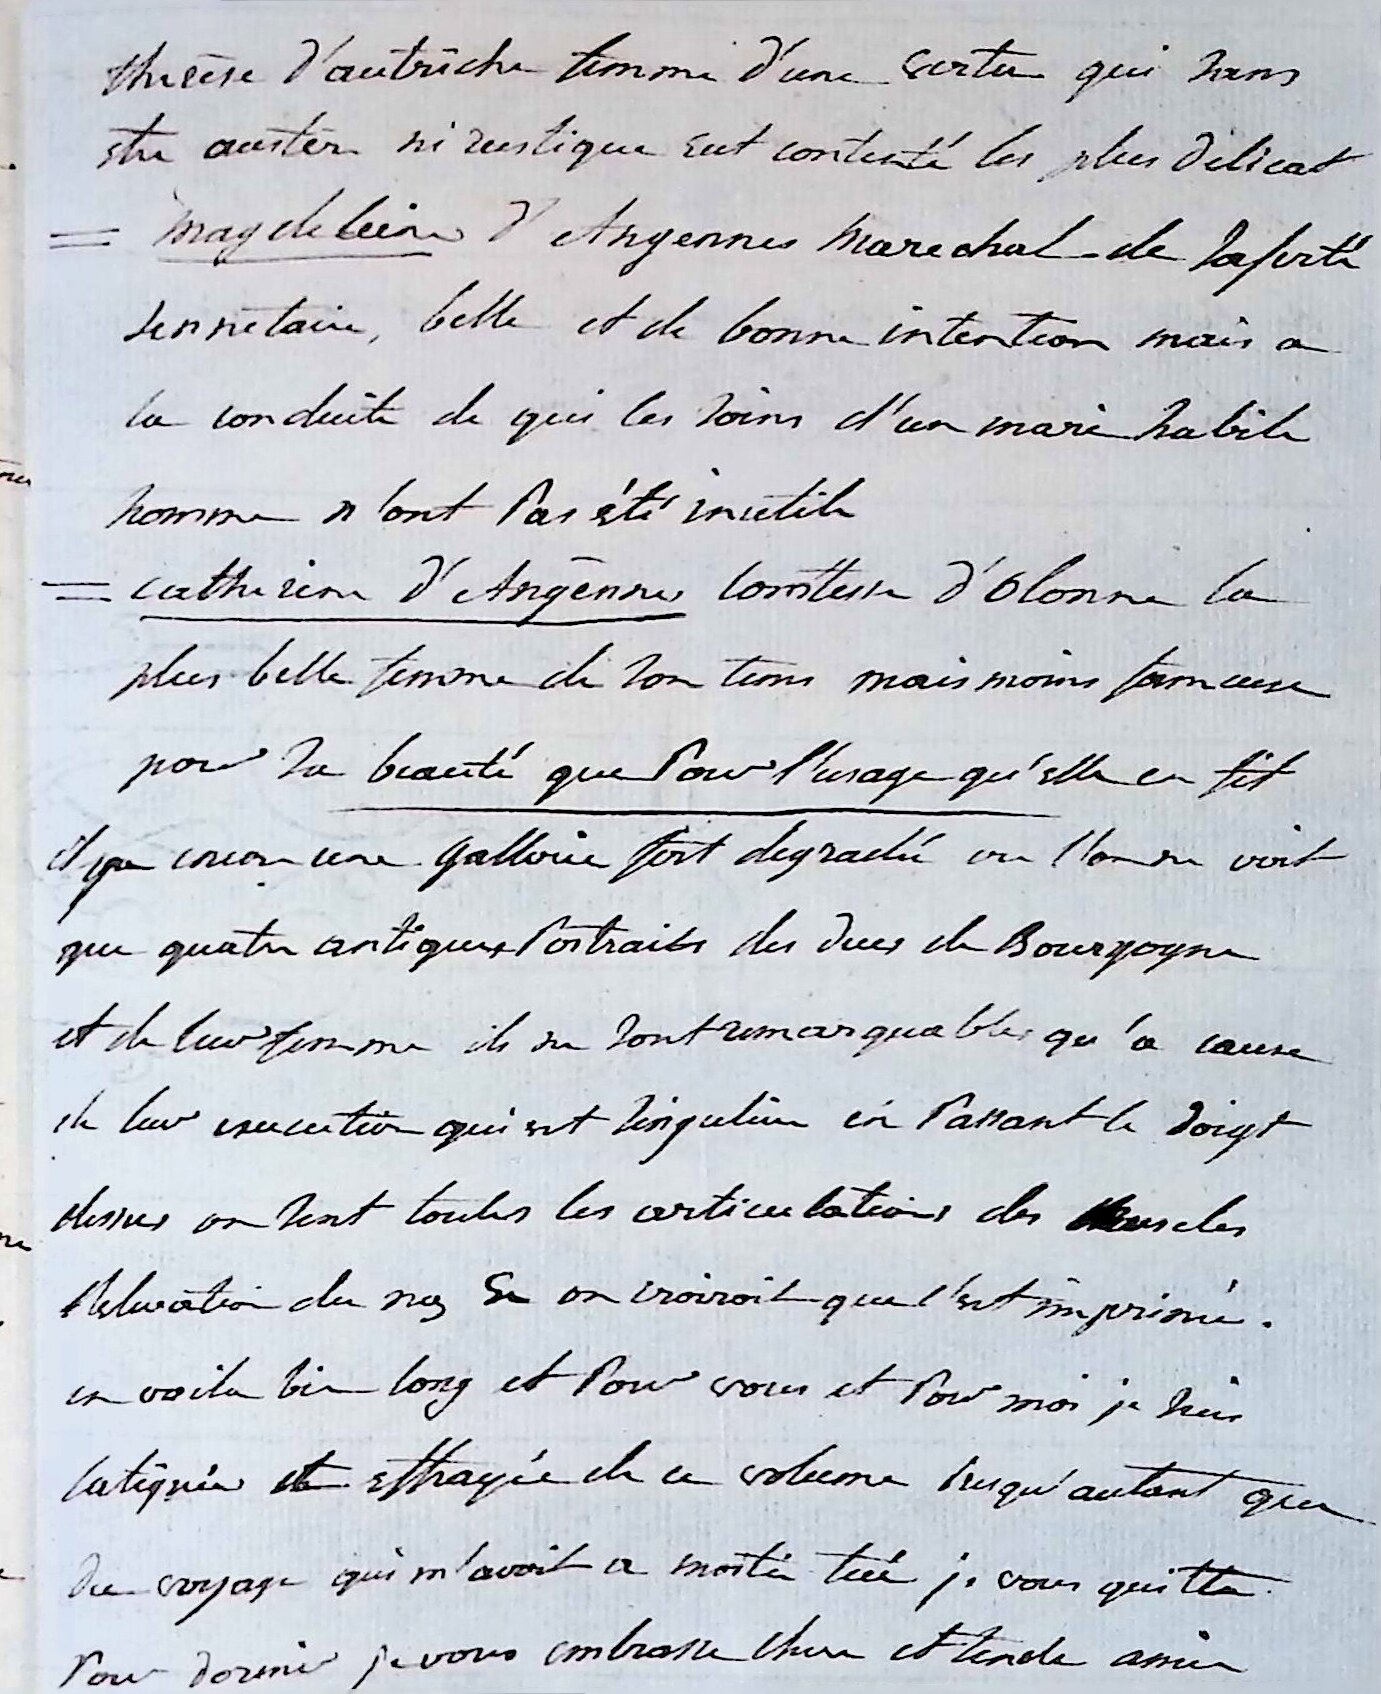 therese d'autriche femme d'une vertu qui sans
etre austere ni rustique eut contenté les plus délicat
= magdeleine d'Angennes marechal de laferté
sennetaire, belle et de bonne intention mais a
la conduite de qui les soins d'un mari habile
homme n'ont pas été inutile
= catherine d'Angennes comtesse d'Olonne la
plus belle femme de son tems mais moins fameuse
pour sa beauté que pour l'usage qu'elle en fit
il y a encore une gallerie fort degradée ou l'on ne voit
que quatre antiques portraits des ducs de Bourgogne
et de leur femme ils ne sont remarquables qu'a cause
de leur execution qui est singuliere en passant le doigt
dessus on sent toutes les articulations des muscles
l'elevation du nez &c on croiroit que c'est imprimé.
en voila bien long et pour vous et pour moi je suis
fatiguée et effrayée de ce volume presqu'autant que
du voyage qui m'avoit a moitie tué je vous quitte
pour dormir je vous embrasse chere et tendre amie